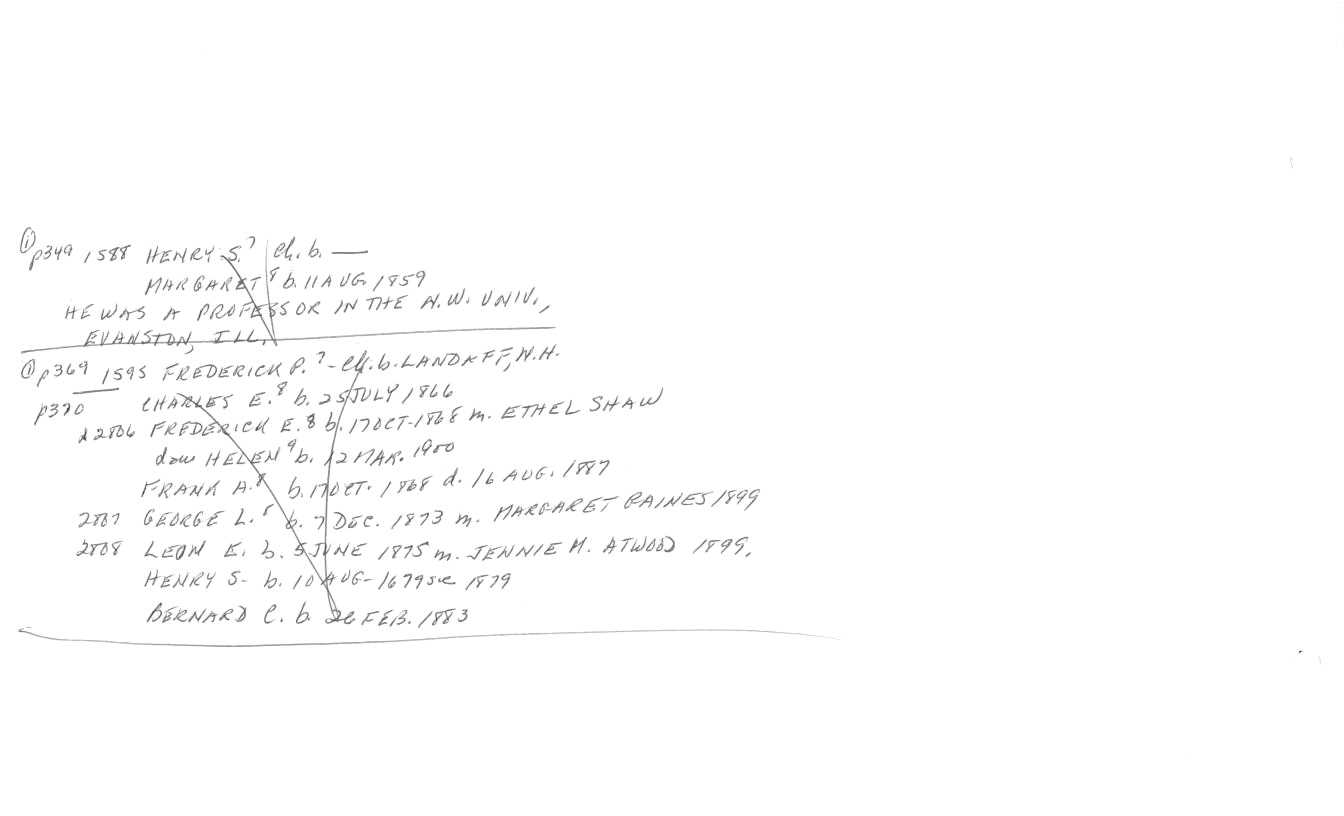 ① p349 1588 HENRY S.⁷ Ch. b. —
MARGARET⁸ b. 11 AUG. 1859
HE WAS A PROFESSOR IN THE N.W. UNIV.,
EVANSTON, ILL.
① p369 1595 FREDERICK P.⁷ - Ch. b. LANDAFF, N.H.
p370 CHARLES E.⁸ b. 25 JULY 1866
2806 FREDERICK E.⁸ b. 17 OCT. 1868 m. ETHEL SHAW
dau HELEN⁹ b. 12 MAR. 1900
FRANK A.⁸ b. 17 OCT. 1868 d. 16 AUG. 1887
2807 GEORGE L.⁸ b. 7 DEC. 1873 m. MARGARET GAINES 1899
2808 LEON E. b. 5 JUNE 1875 m. JENNIE M. ATWOOD 1899,
HENRY S- b. 10 AUG- 1679 sic 1879
BERNARD C. b. FEB. 1883